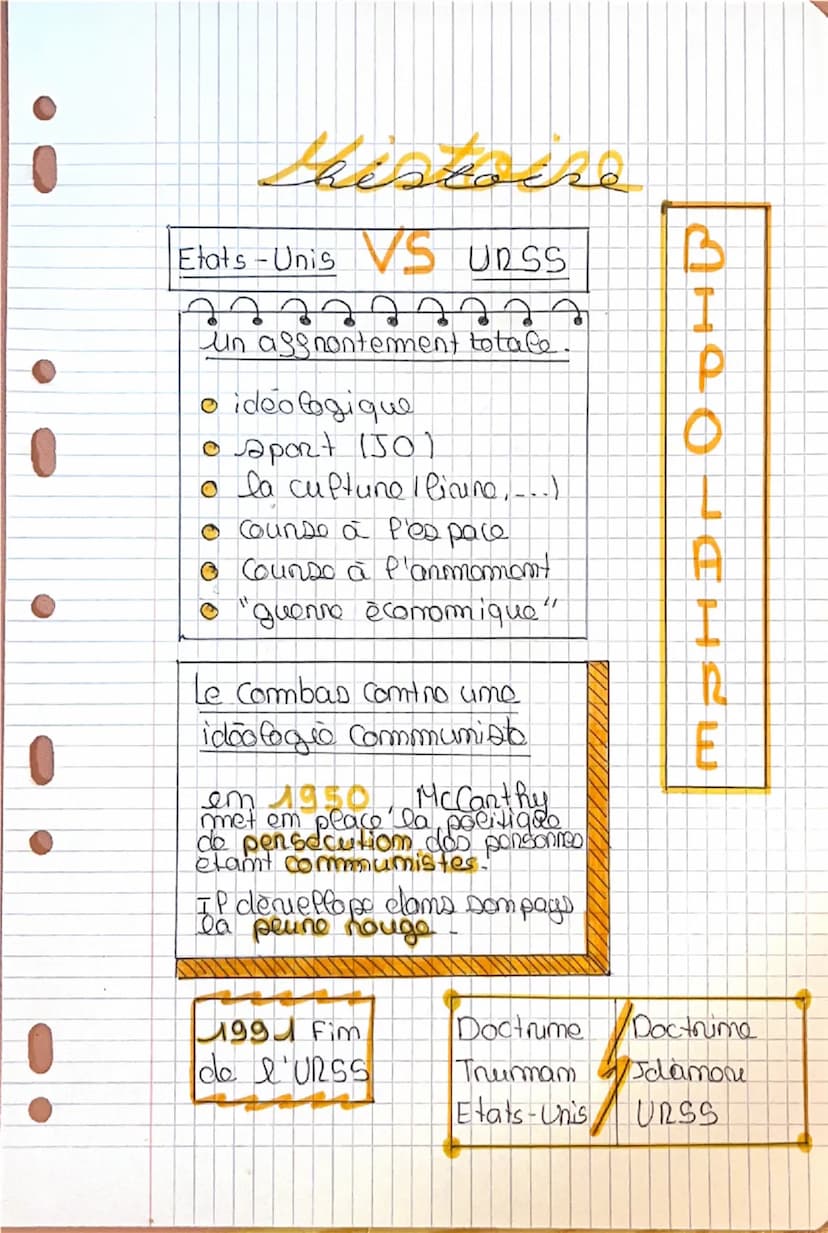 Histoire
Etats-Unis VS URSS
BIPOLAIRE
Un affrontement totale.
idéologique
sport (JO)
la culture (livre, ...)
course à l'espace
course à l'armement
"guerre économique"
Le combas contre une
idéologie communiste
en 1950, McCarthy
met en place la politique
de persécution des personnes
étant communistes.
Il développe dans son pays
la peure rouge.
1991 Fin
de l'URSS
Doctrine
Truman
Etats-Unis
Doctrine
Jdamov
URSS